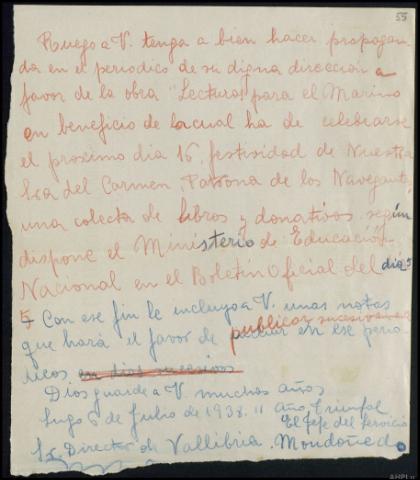 55
Ruego a V. tenga a bien hacer propagan
da en el periodico de su digna direccion a
favor de la obra "Lecturas para el Marino
en beneficio de la cual ha de celebrarse
el proximo dia 16, festividad de Nuestra
Sra del Carmen, Patrona de los Navegantes
una colecta de libros y donativos según
dispone el Ministerio de Educación
Nacional en el Boletin Oficial del dia 5
5 Con ese fin le incluyo a V. unas notas
que hará el favor de publicar en ese perio
dicos en dias sucesivos
Dios guarde a V. muchos años
Lugo 6 de Julio de 1938. II Año Triunfal
El Jefe del Servicio
Sr. Director de Vallibria. Mondoñedo
AHPLu